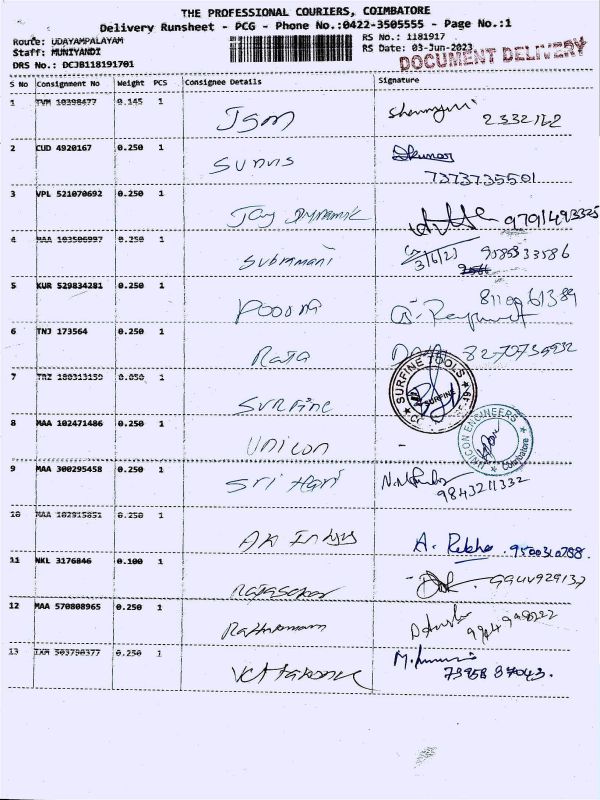 THE PROFESSIONAL COURIERS, COIMBATORE
Delivery Runsheet - PCG - Phone No.:0422-3505555 - Page No.:1
Route: UDAYAMPALAYAM
Staff: MUNIYANDI
DRS No.: DCJB118191701
RS No.: 1181917
RS Date: 03-Jun-2023
DOCUMENT DELIVERY
S No Consignment No Weight PCS Consignee Details Signature
1 TVM 10398477 0.145 1 JSM 2332162
2 CUD 4920167 0.250 1 Sunns Dkumar 7373735501
3 VPL 521070692 0.250 1 Joy Dynamic 9791493325
4 MAA 103506997 0.250 1 Subramani 3/6/23 9585933586
5 KUR 529834281 0.250 1 Poorna 8110061389
6 TNJ 173564 0.250 1 Raja
7 TRZ 180313159 0.050 1 Surfine SURFINE TOOLS SURFINE
8 MAA 102471486 0.250 1 Unicon - UNICON ENGINEERS Coimbatore
9 MAA 300295458 0.250 1 Sri Hari 9843211332
10 MAA 102915851 0.250 1 AK Indus A. Rekha . 9500310788.
11 NKL 3176846 0.100 1 Rajasekar 9944929137
12 MAA 570808965 0.250 1
13 IXM 503790377 0.250 1 79958 87043.
1181917